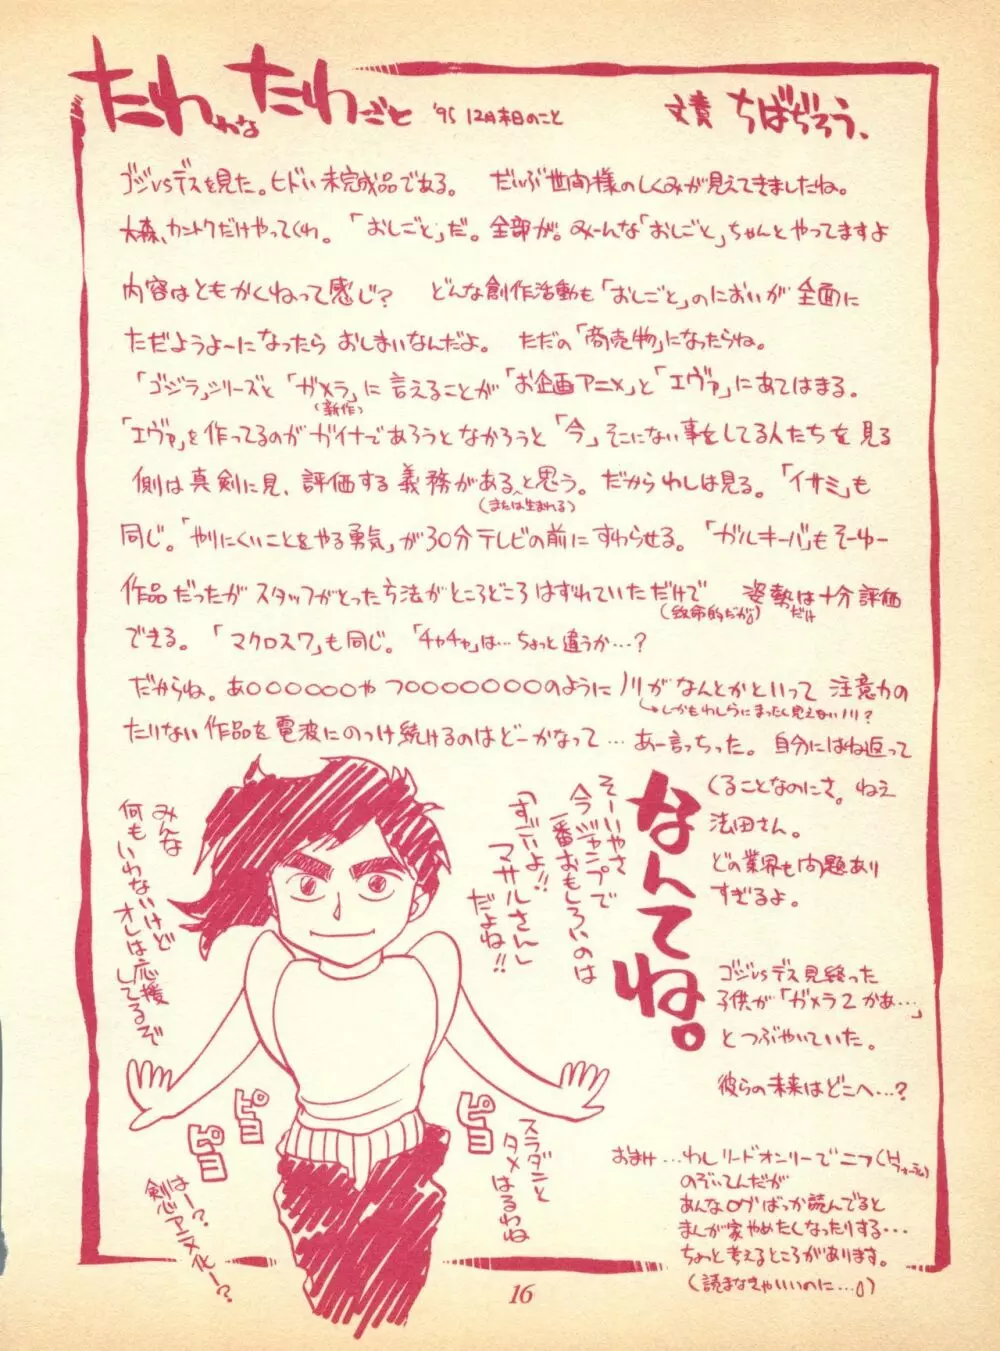 たわわなたわごと '95 12月末日のこと 文責 ちばぢろう、
ゴジvsデスを見た。ヒドい未完成品である。 だいぶ世間様のしくみが見えてきましたね。
大森、カントクだけやってくれ。「おしごと」だ。全部が。みーんな「おしごと」ちゃんとやってますよ
内容はともかくねって感じ? どんな創作活動も「おしごと」のにおいが全面に
ただようよーになったらおしまいなんだよ。 ただの「商売物」になったらね。
「ゴジラ」シリーズと「ガメラ」に言えることが「お企画アニメ」と「エヴァ」にあてはまる。
(新作)
「エヴァ」を作ってるのがガイナであろうとなかろうと「今」そこにない事をしてる人たちを見る
側は真剣に見、評価する義務があると思う。だからわしは見る。「イサミ」も
(または生まれる)
同じ。「やりにくいことをやる勇気」が30分テレビの前にすわらせる。「ガルキーバ」もそーゆー
作品だったがスタッフがとった方法がところどころはずれていただけで 姿勢は十分評価
(致命的だが) だけ
できる。「マクロス7」も同じ。「チャチャ」は…ちょっと違うか…?
だからね。あ○○○○○○やつ○○○○○○○のようにノリがなんとかといって注意力の
↳しかもわしらにまったく見えないノリ?
たりない作品を電波にのっけ続けるのはどーかなって…あー言っちった。自分にはね返って
くることなのにさ。ねえ
法田さん。
どの業界も問題あり
すぎるよ。
なんてね。
そーいやさ
今ジャンプで
一番おもしろいのは
「すごいよ!!
マサルさん」
だよね!!
みんな
何もいわないけど
オレは応援
してるぞ
ゴジvsデス見終った
子供が「ガメラ2かあ…」
とつぶやいていた。
彼らの未来はどこへ…?
ピヨ
ピヨ
ピヨ
スラダンと
タメはるわね
はー?
剣心アニメ化ー?
おまけ…わしリードオンリーでニフ(Hフォーラム)
のぞいてんだが
あんなログばっか読んでると
まんが家やめたくなったりする…
ちょっと考えるところがあります。
(読まなきゃいいのに…)
16